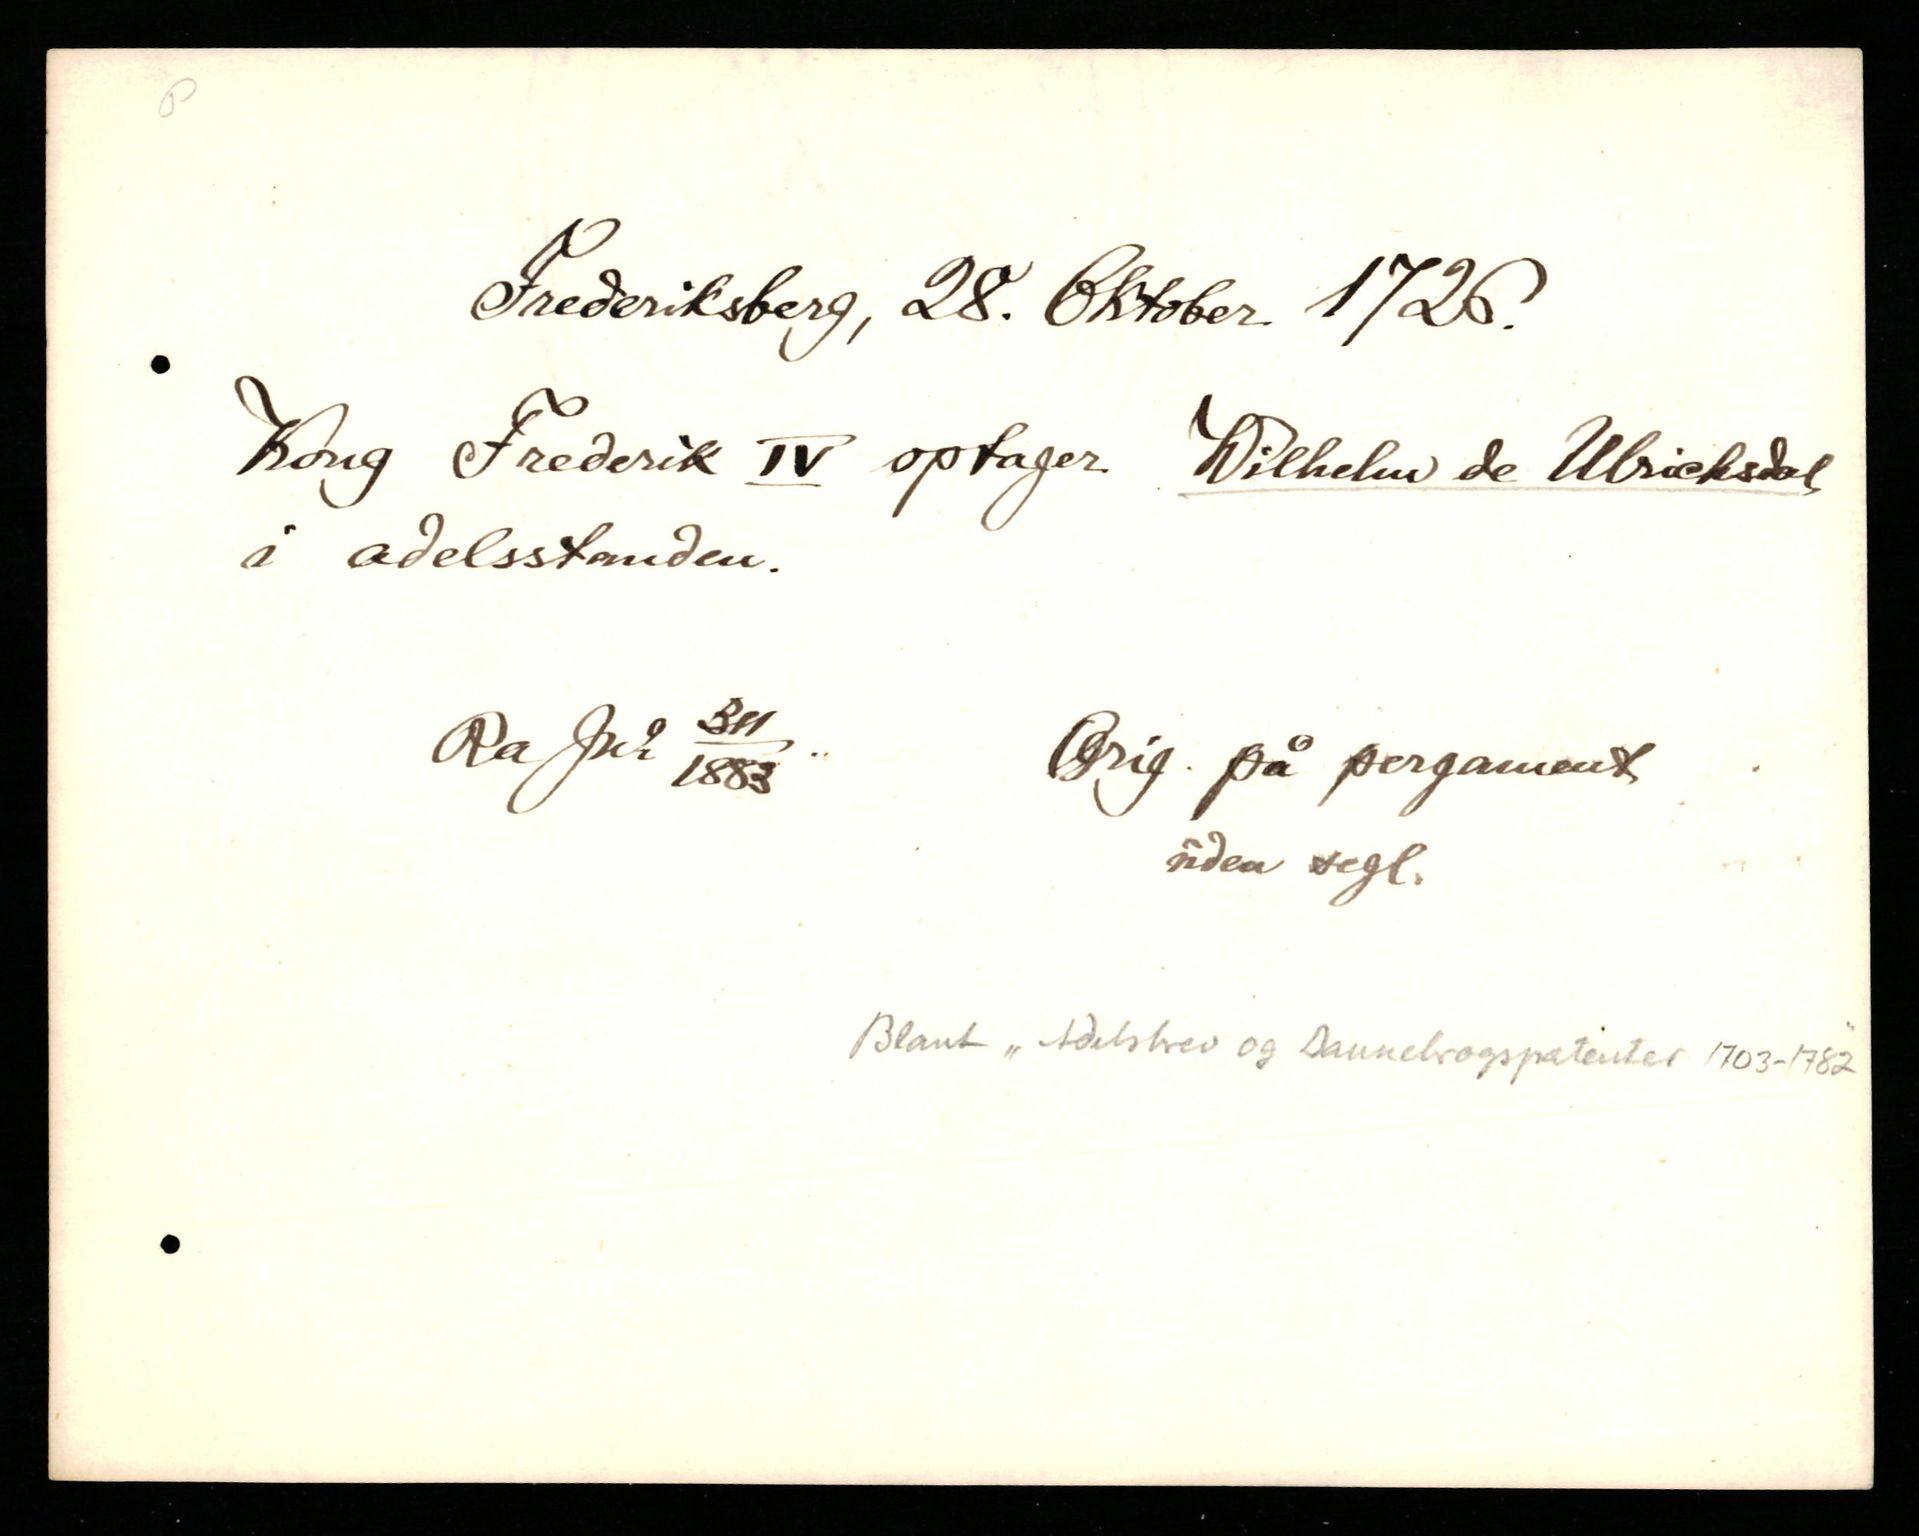 P
Frederiksberg, 28. Oktober 1726.
Kong Frederik IV optager Wilhelm de Ulricksdal
i adelsstanden.
Ra Jnr 311/1883 Orig. på pergament
uden segl.
Blant „Adelsbrev og Dannebrogspatenter 1703-1782"